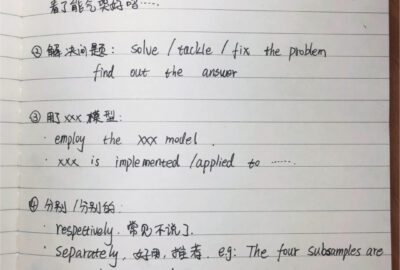 看了能气哭好吗……
② 解决问题: solve / tackle / fix the problem
find out the answer
③ 用了xxx模型:
· employ the xxx model.
· xxx is implemented /applied to ……
④ 分别/分别的:
· respectively, 常见不说了.
· separately, 好用, 推荐. eg: The four subsamples are